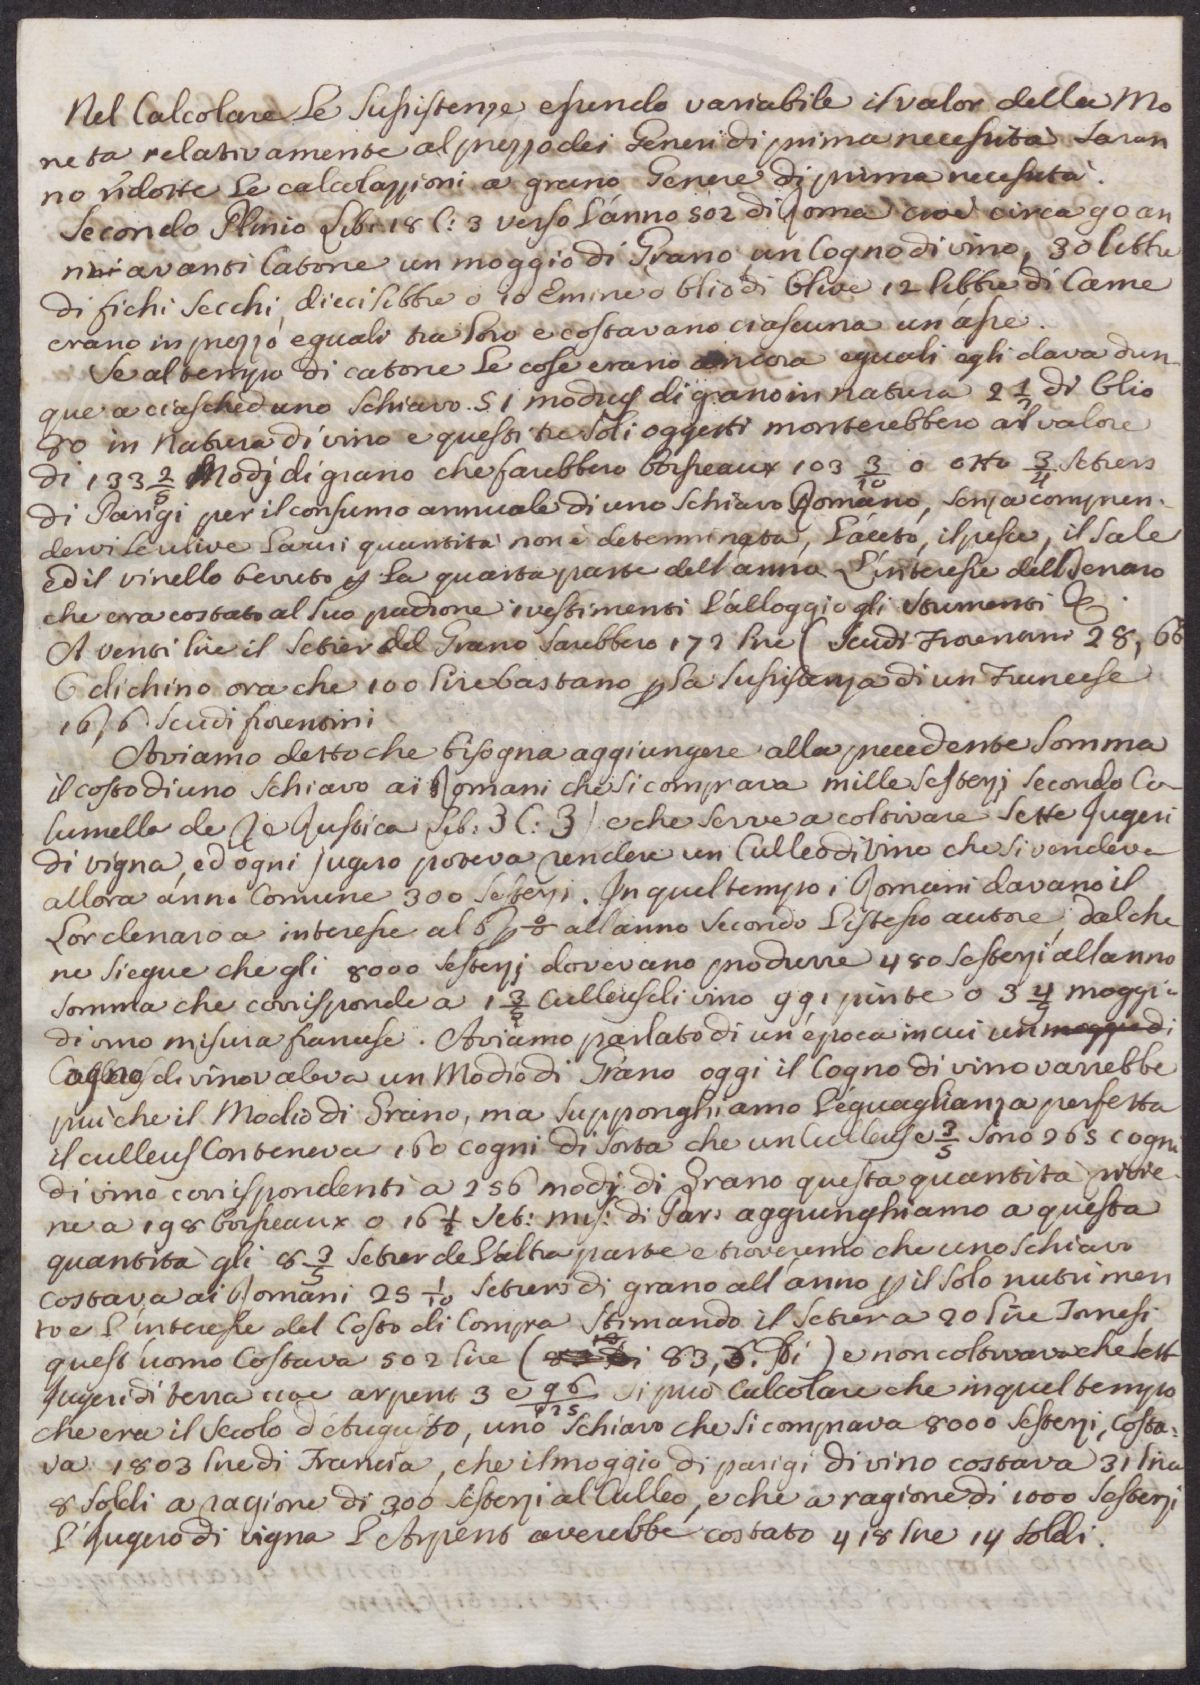 Nel Calcolare Le Sussistenze essendo variabile il valor della Mo
neta relativamente al prezzo dei Generi di prima necessità Saran
no ridotte Le calcolazzioni a grano Genere di prima necessità.
Secondo Plinio Lib: 18 C: 3 verso l'anno 502 di Roma cioè circa 90 an
ni avanti Catone un moggio di Grano, un Cogno di vino, 30 libbre
di fichi Secchi, dieci libbre o 10 Emine o Olio di Olive 12 libbre di Carne
erano in prezzo eguali tra loro e costavano ciascuna un'asse.
Se al tempo di catone Le cose erano ancora eguali egli dava dun
que a ciascheduno Schiavo. 51 modus di grano in natura 2 1/2 di Olio
80 in Natura di vino e questi tre Soli oggetti monterebbero al valore
di 133 2/5 Modj di grano che farebbero boisseaux 103 3/10 o otto 3/4 Setiers
di Parigi per il consumo annuale di uno Schiavo Romano, senza compren
dervi Le ulive La cui quantità non è determinata, L'aceto, il pesce, il Sale
ed il vinello bevuto p La quarta parte dell'anno L'interesse dell Denaro
che era costato al Suo padrone i vestimenti L'alloggio gli Strumenti &.
A venti lire il Setier del Grano Sarebbero 172 lire ( Scudi Fiorentini 28, 66
6 dichino ora che 100 lire bastano p la Sussistanza di un Francese
16/6 Scudi fiorentini
Aviamo detto che bisogna aggiungere alla precedente Somma
il costo di uno Schiavo ai Romani che si comprava mille Sesterzj Secondo Co
lumella de Re Rustica Lib: 3 C: 3 / e che serve a coltivare Sette Jugeri
di vigna, ed ogni Jugero poteva rendere un Culleo di Vino che Si vendeva
allora anno Comune 300 Sesterzj. In quel tempo i Romani davano il
Lor denaro a interesse al 6 p % all'anno Secondo L'istesso autore, dal che
ne Siegue che gli 8000 Sesterzj dovevano produrre 480 Sesterzj all anno
Somma che corrisponde a 1 3/5 Culleus di vino 991 pinte o 3 4/5 moggi
di vino misura francese. Aviamo parlato di un'epoca in cui un moggio di
Cogno di vino valeva un Modio di Grano oggi il Cogno di vino varrebbe
più che il Modio di Grano, ma Supponghiamo L'eguaglianza perfetta
il culleus Conteneva 160 cogni di Sorta che un Culleus e 3/5 Sono 265 cogni
di vino corrispondenti a 256 modj di Grano questa quantità rivie
ne a 198 boisseaux o 16 1/2 Set: mis: di Par: aggiunghiamo a questa
quantità gli 8 3/5 Setier de L'altra parte e troveremo che uno Schiavo
costava ai Romani 25 1/10 Setiers di grano all'anno p il Solo nutrimen
to e L'interesse del Costo di Compra Stimando il Setier a 20 lire Tornesi
quest'uomo Costava 502 lire ( 83, ) e non coltivava che Sett
Jugeri di terra cioè arpent 3 e 96/125 Si può Calcolare che in quel tempo
che era il Secolo d'Augusto, uno Schiavo che Si comprava 8000 Sesterzj, Costa=
va 1803 lire di Francia, che il moggio di parigi di vino costava 31 lira
8 Soldi a ragione di 300 Sesterzj al Culleo, e che a ragione di 1000 Sesterzj
L'Jugero di vigna L'Arpent averebbe costato 418 lire 14 Soldi.